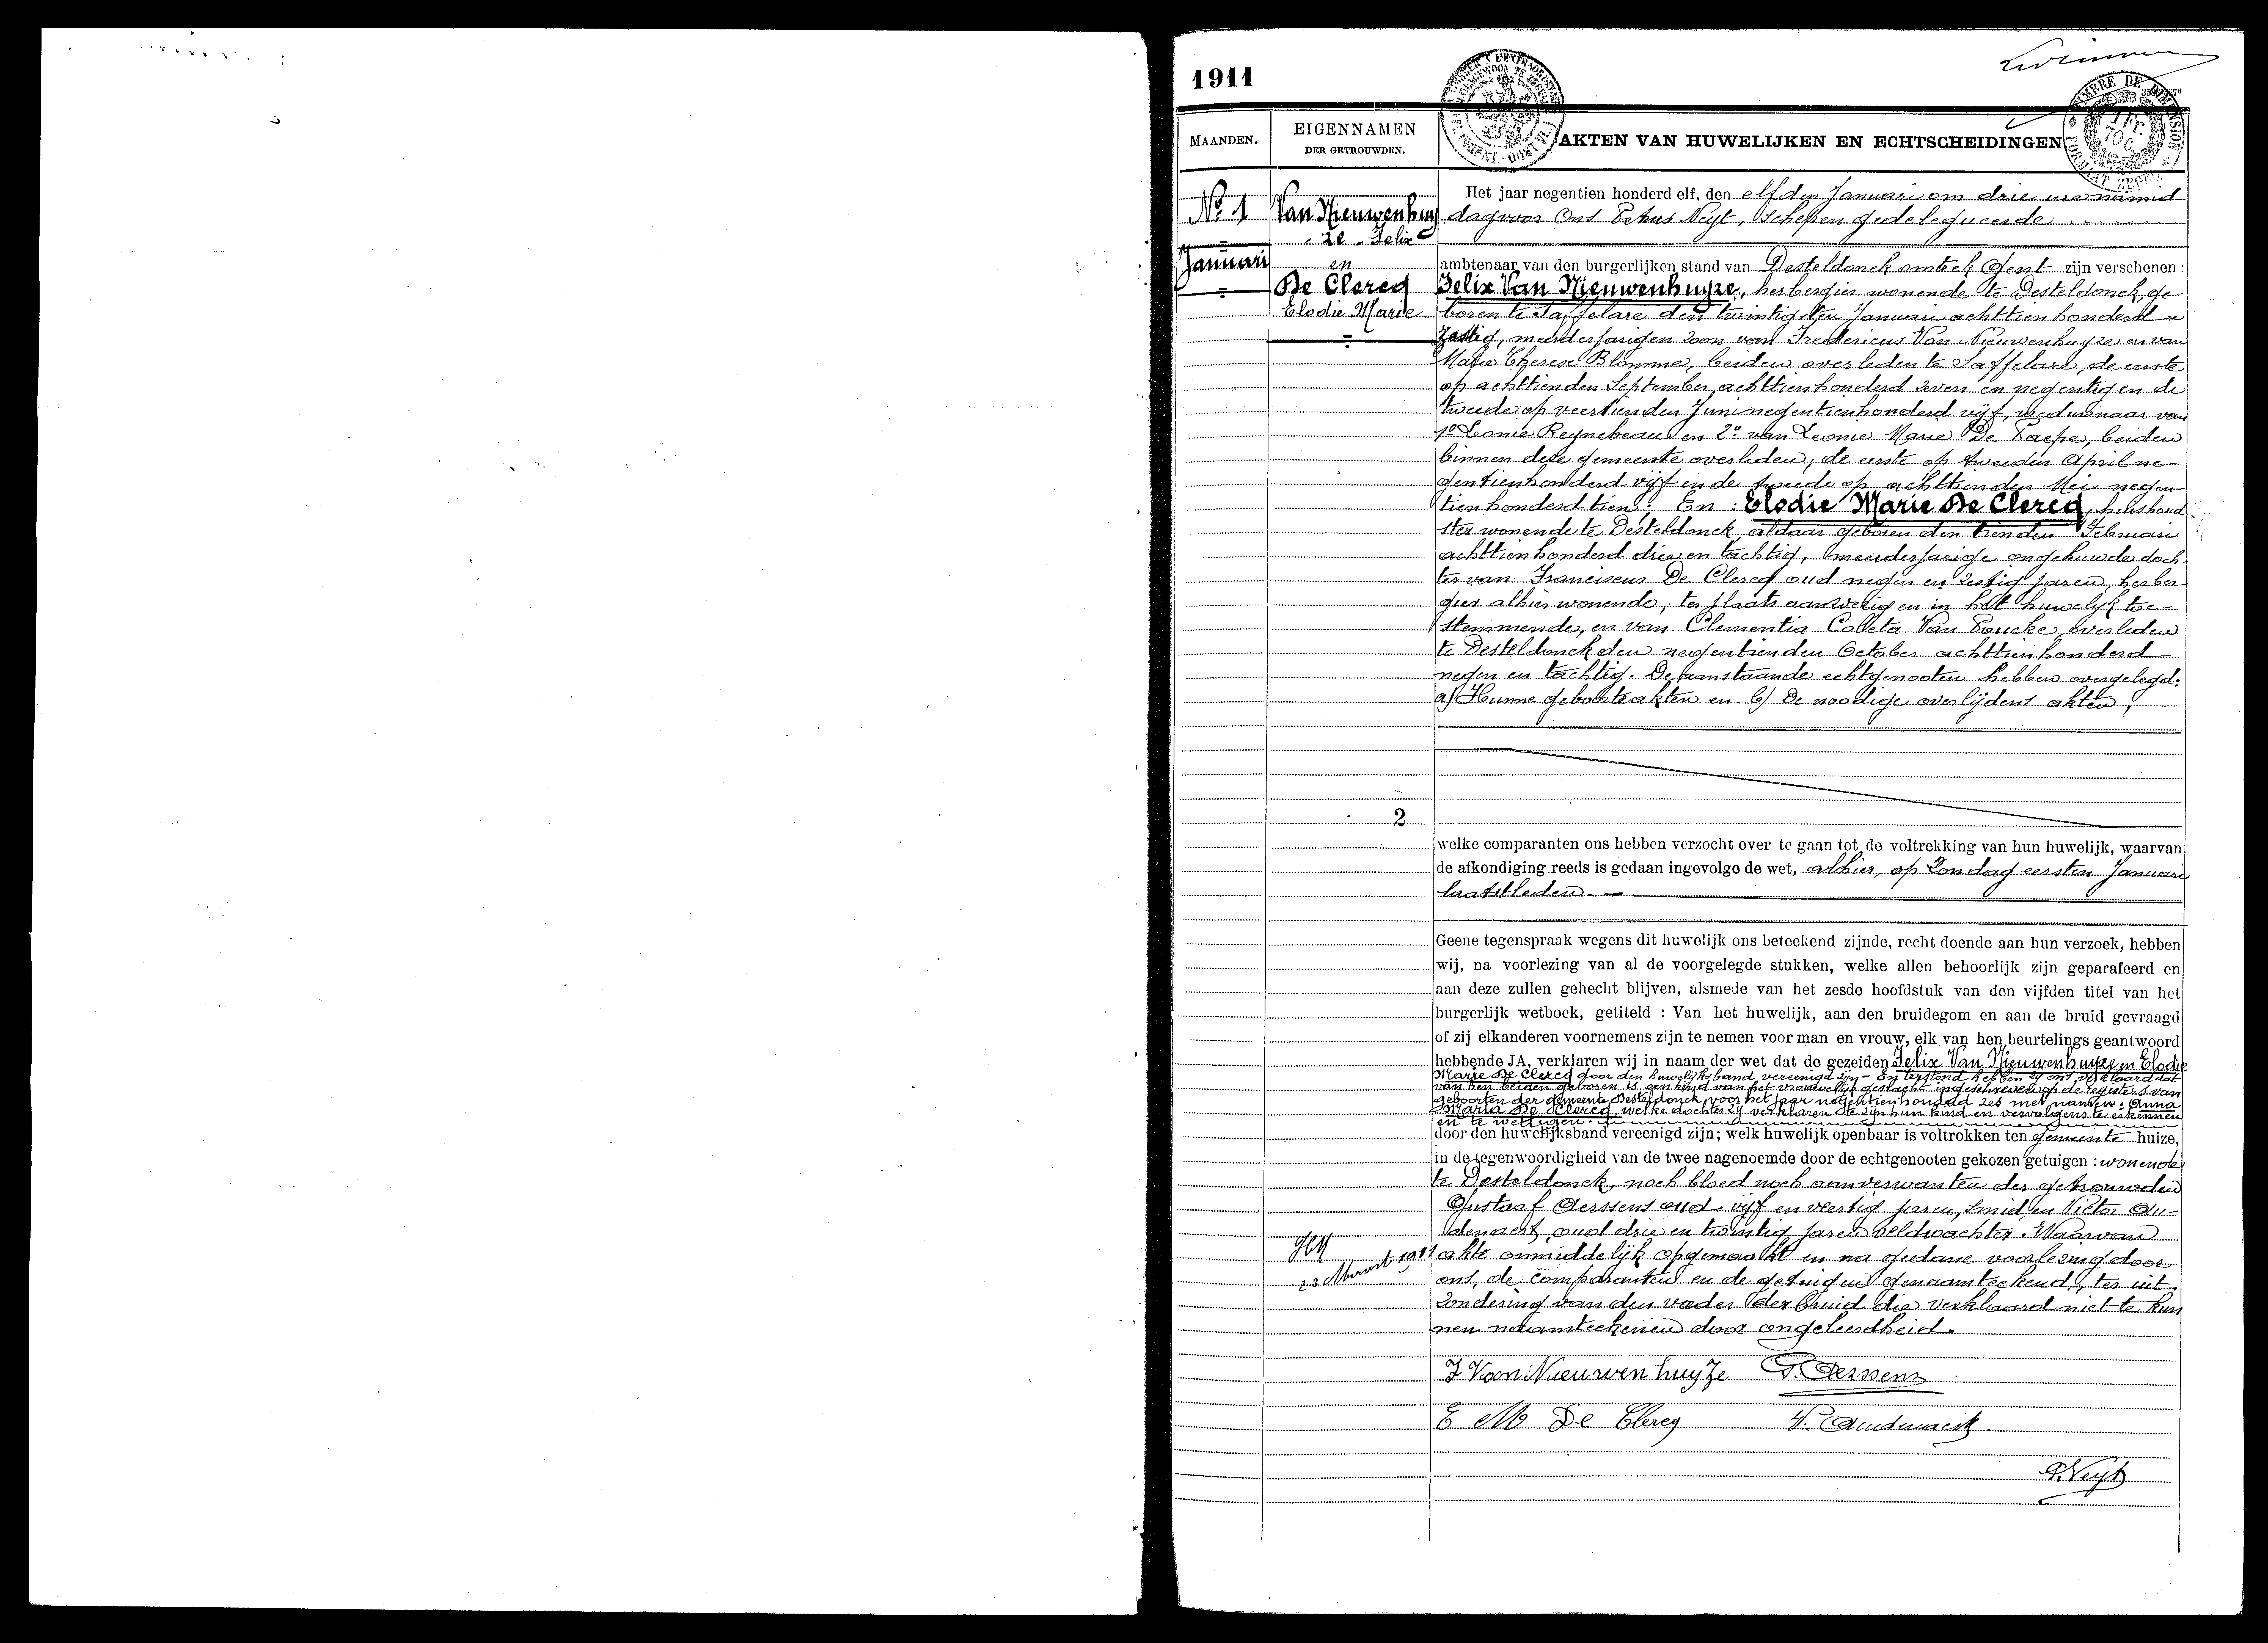 1911
MAANDEN.
EIGENNAMEN
DER GETROUWDEN.
AKTEN VAN HUWELIJKEN EN ECHTSCHEIDINGEN
No 1
Januari
Van Nieuwenhuy
ze Felix
en
De Clercq
Elodie Marie
Het jaar negentien honderd elf, den elfden Januari om drie ure namid
dag voor Ons Petrus Neyt, Schepen gedelegueerde
ambtenaar van den burgerlijken stand van Desteldonck omtrek Gent zijn verschenen :
Felix Van Nieuwenhuyze, herbergier wonende te Desteldonck, ge
boren te Saffelare den twintigsten Januari achttienhonderd
zestig, meerderjarigen zoon van Fredericus Van Nieuwenhuyze en van
Marie Therese Blomme, beiden overleden te Saffelare, de eerste
op achttienden September achttienhonderd zeven en negentig en de
tweede op veertienden Juni negentienhonderd vijf, weduwnaar van
1o Leonie Reynebeau en 2o van Leonie Marie De Paepe, beiden
binnen deze gemeente overleden, de eerste op tweeden April ne-
gentienhonderd vijf en de tweede op achttienden Mei negen-
tienhonderd tien; En : Elodie Marie De Clercq, huishoud
ster wonende te Desteldonck, aldaar geboren den tienden Februari
achttienhonderd drie en tachtig, meerderjarige ongehuwde doch-
ter van Franciscus De Clercq oud negen en zestig jaren, herber-
gier alhier wonende, ter plaats aanwezig en in het huwelijk toe-
stemmende, en van Clementia Coleta Van Poucke, overleden
te Desteldonck den negentienden October achttienhonderd
negen en tachtig. De aanstaande echtgenooten hebben overgelegd:
a) Hunne geboorteakten en b) De noodige overlijdens akten;
2
welke comparanten ons hebben verzocht over te gaan tot de voltrekking van hun huwelijk, waarvan
de afkondiging reeds is gedaan ingevolge de wet, alhier, op Zondag eersten Januari
laatstleden.
Geene tegenspraak wegens dit huwelijk ons beteekend zijnde, recht doende aan hun verzoek, hebben
wij, na voorlezing van al de voorgelegde stukken, welke allen behoorlijk zijn geparafeerd en
aan deze zullen gehecht blijven, alsmede van het zesde hoofdstuk van den vijfden titel van het
burgerlijk wetboek, getiteld : Van het huwelijk, aan den bruidegom en aan de bruid gevraagd
of zij elkanderen voornemens zijn te nemen voor man en vrouw, elk van hen beurtelings geantwoord
hebbende JA, verklaren wij in naam der wet dat de gezeiden Felix Van Nieuwenhuyze en Elodie
Marie De Clercq door den huwelijksband vereenigd zijn - En terstond hebben zij ons verklaard dat
van hen beiden geboren is een kind van het vrouwelijk geslacht ingeschreven op de registers van
geboorten der gemeente Desteldonck voor het jaar negentienhonderd zes met namen: Anna
Maria De Clercq, welke dochter zij verklaren te zijn hun kind en vervolgens te erkennen
en te wettigen.
door den huwelijksband vereenigd zijn; welk huwelijk openbaar is voltrokken ten gemeente huize,
in de tegenwoordigheid van de twee nagenoemde door de echtgenooten gekozen getuigen : wonende
te Desteldonck, noch bloed noch aanverwanten der getrouwden
Gustaaf Gerssens oud vijf en veertig jaren, smid, en Victor Au-
denaert, oud drie en twintig jaren veldwachter. Waarvan
akte onmiddelijk opgemaakt en na gedane voorlezing door
ons, de comparanten en de getuigen genaamteekend, ter uit-
zondering van den vader der bruid die verklaard niet te kun
nen naamteekenen door ongeleerdheid.
F Van Nieuwenhuyze
E M De Clercq
P. Neyt